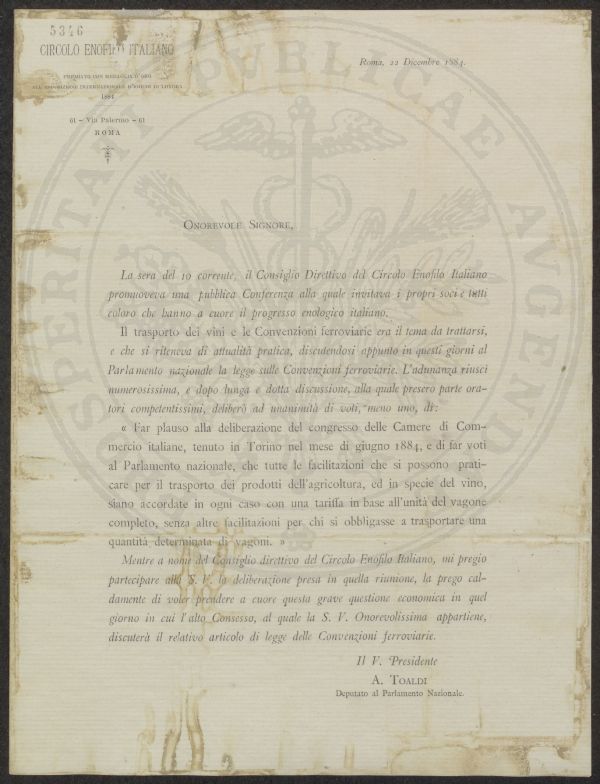 5346
CIRCOLO ENOFILO ITALIANO
PREMIATO CON MEDAGLIA D'ORO
ALL'ESPOSIZIONE INTERNAZIONALE D'IGIENE DI LONDRA
1884
61 – Via Palermo – 61
ROMA
Roma, 22 Dicembre 1884.
PROSPERITATI PUBLICAE AUGENDAE
ONOREVOLE SIGNORE,
La sera del 10 corrente, il Consiglio Direttivo del Circolo Enofilo Italiano
promuoveva una pubblica Conferenza alla quale invitava i propri soci e tutti
coloro che hanno a cuore il progresso enologico italiano.
Il trasporto dei vini e le Convenzioni ferroviarie era il tema da trattarsi,
e che si riteneva di attualità pratica, discutendosi appunto in questi giorni al
Parlamento nazionale la legge sulle Convenzioni ferroviarie. L'adunanza riuscì
numerosissima, e dopo lunga e dotta discussione, alla quale presero parte ora-
tori competentissimi, deliberò ad unanimità di voti, meno uno, di:
« Far plauso alla deliberazione del congresso delle Camere di Com-
mercio italiane, tenuto in Torino nel mese di giugno 1884, e di far voti
al Parlamento nazionale, che tutte le facilitazioni che si possono prati-
care per il trasporto dei prodotti dell'agricoltura, ed in specie del vino,
siano accordate in ogni caso con una tariffa in base all'unità del vagone
completo, senza altre facilitazioni per chi si obbligasse a trasportare una
quantità determinata di vagoni. »
Mentre a nome del Consiglio direttivo del Circolo Enofilo Italiano, mi pregio
partecipare alla S. V. la deliberazione presa in quella riunione, la prego cal-
damente di voler prendere a cuore questa grave questione economica in quel
giorno in cui l'alto Consesso, al quale la S. V. Onorevolissima appartiene,
discuterà il relativo articolo di legge delle Convenzioni ferroviarie.
Il V. Presidente
A. TOALDI
Deputato al Parlamento Nazionale.